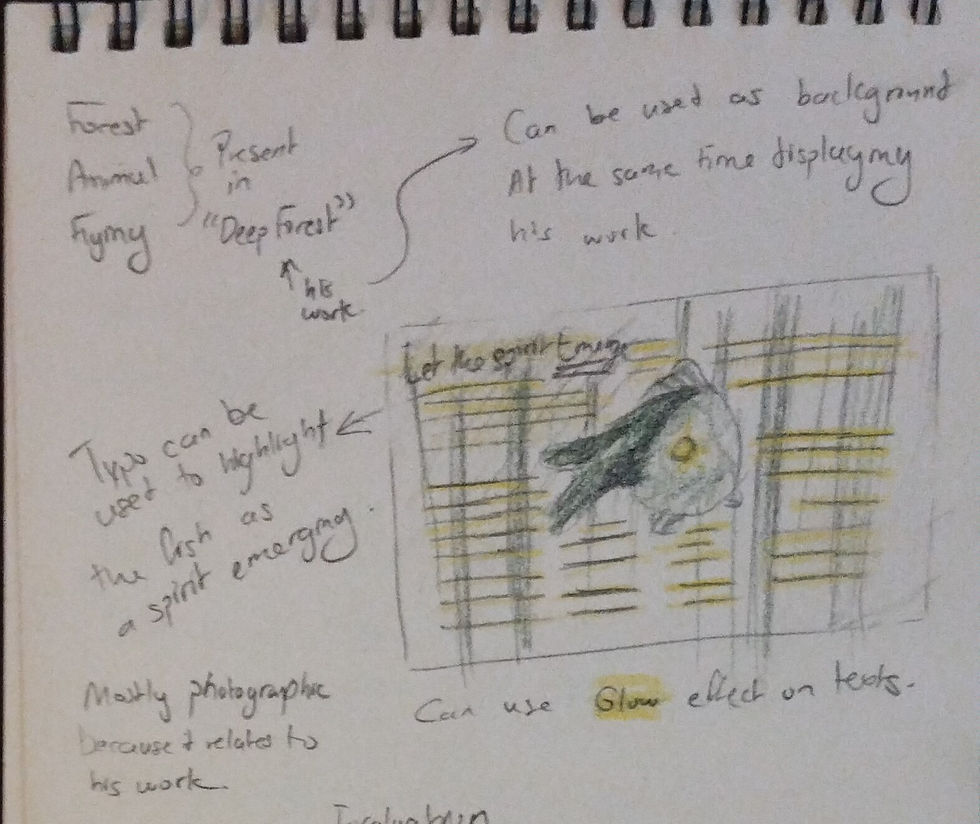 Forest
Animal
Present
in
"Deep Forest"
his
work
Can be used as background
At the same time displaying
his work
Let the spirit Emerge
Typo can be
used to highlight
the fish as
a spirit emerging.
Mostly photographic
because it relates to
his work.
Can use Glow effect on texts.